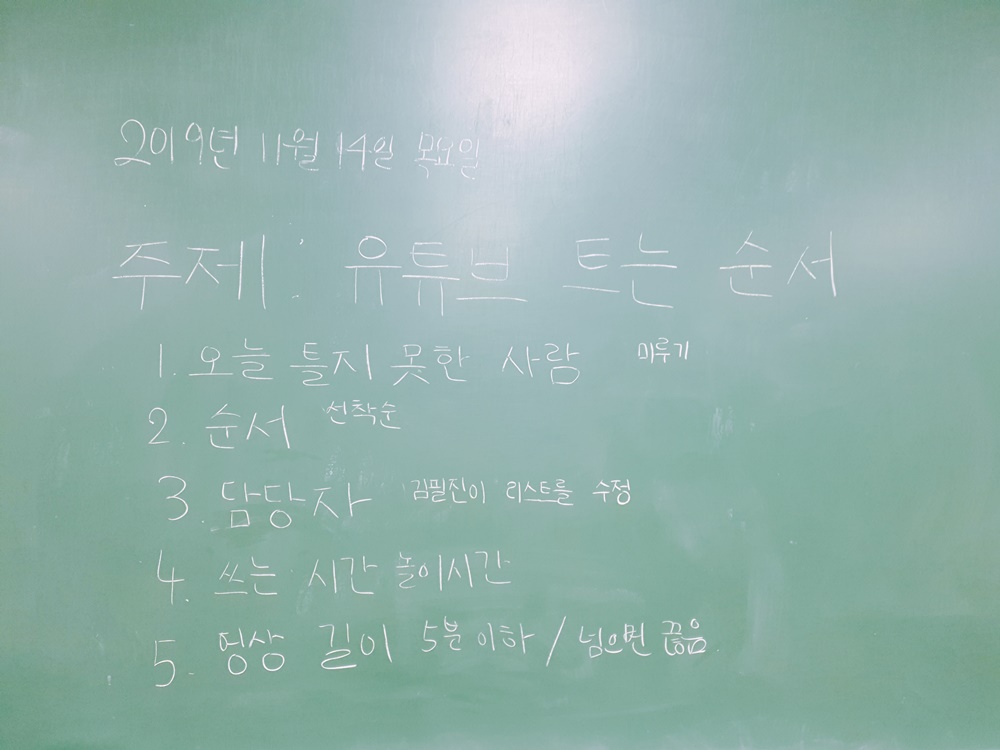 2019년 11월 14일 목요일
주제: 유튜브 트는 순서
1. 오늘 틀지 못한 사람 미루기
2. 순서 선착순
3. 담당자 김필진이 리스트를 수정
4. 쓰는 시간 놀이시간
5. 영상 길이 5분 이하 / 넘으면 끊음